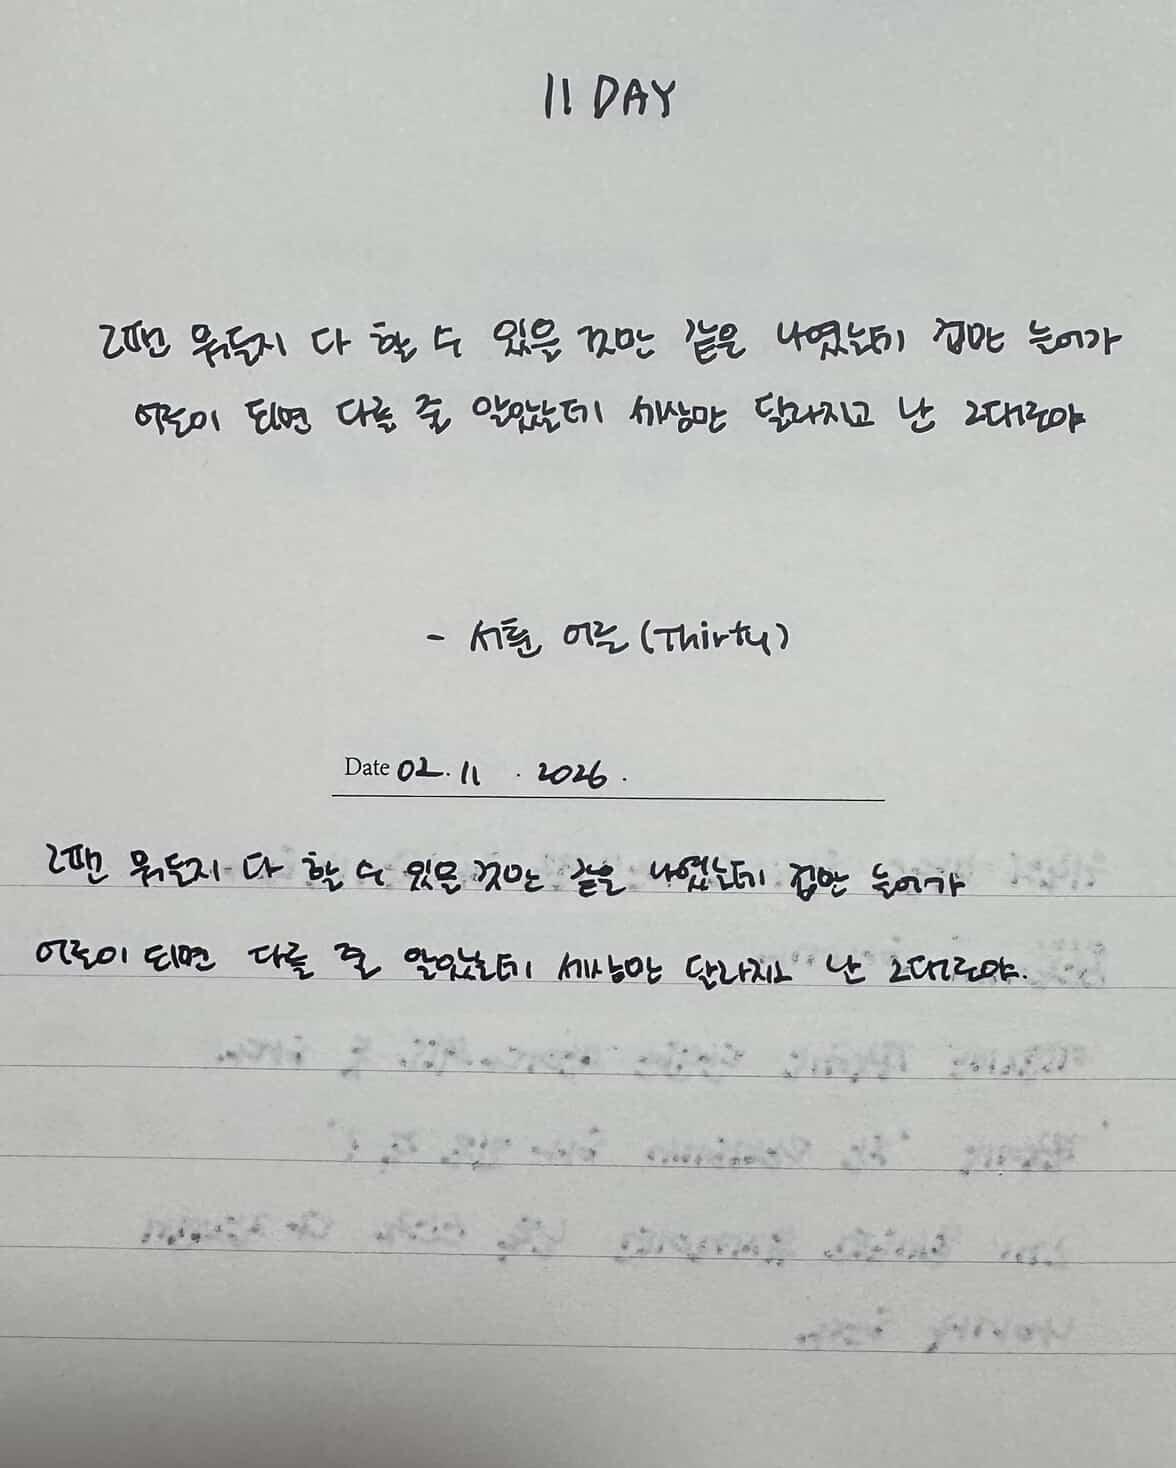 11 DAY
그땐 뭐든지 다 할 수 있을 것만 같은 나였는데 겁만 늘어가
어른이 되면 다를 줄 알았는데 세상만 달라지고 난 그대로야
- 서툰 어른 (Thirty)
Date 02. 11 . 2026 .
그땐 뭐든지 다 할 수 있을 것만 같은 나였는데 겁만 늘어가
어른이 되면 다를 줄 알았는데 세상만 달라지고 난 그대로야.